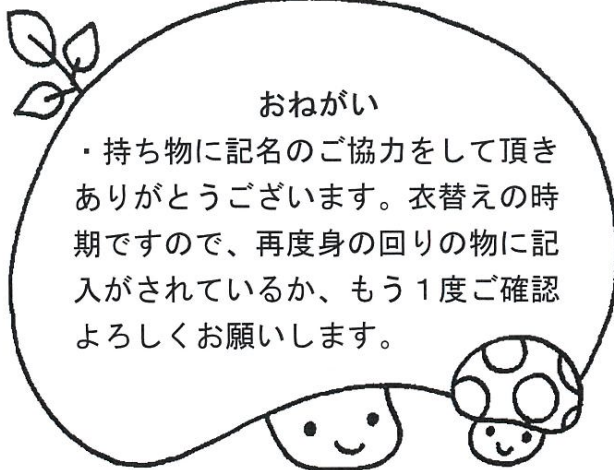 おねがい
・持ち物に記名のご協力をして頂き
ありがとうございます。衣替えの時
期ですので、再度身の回りの物に記
入がされているか、もう１度ご確認
よろしくお願いします。